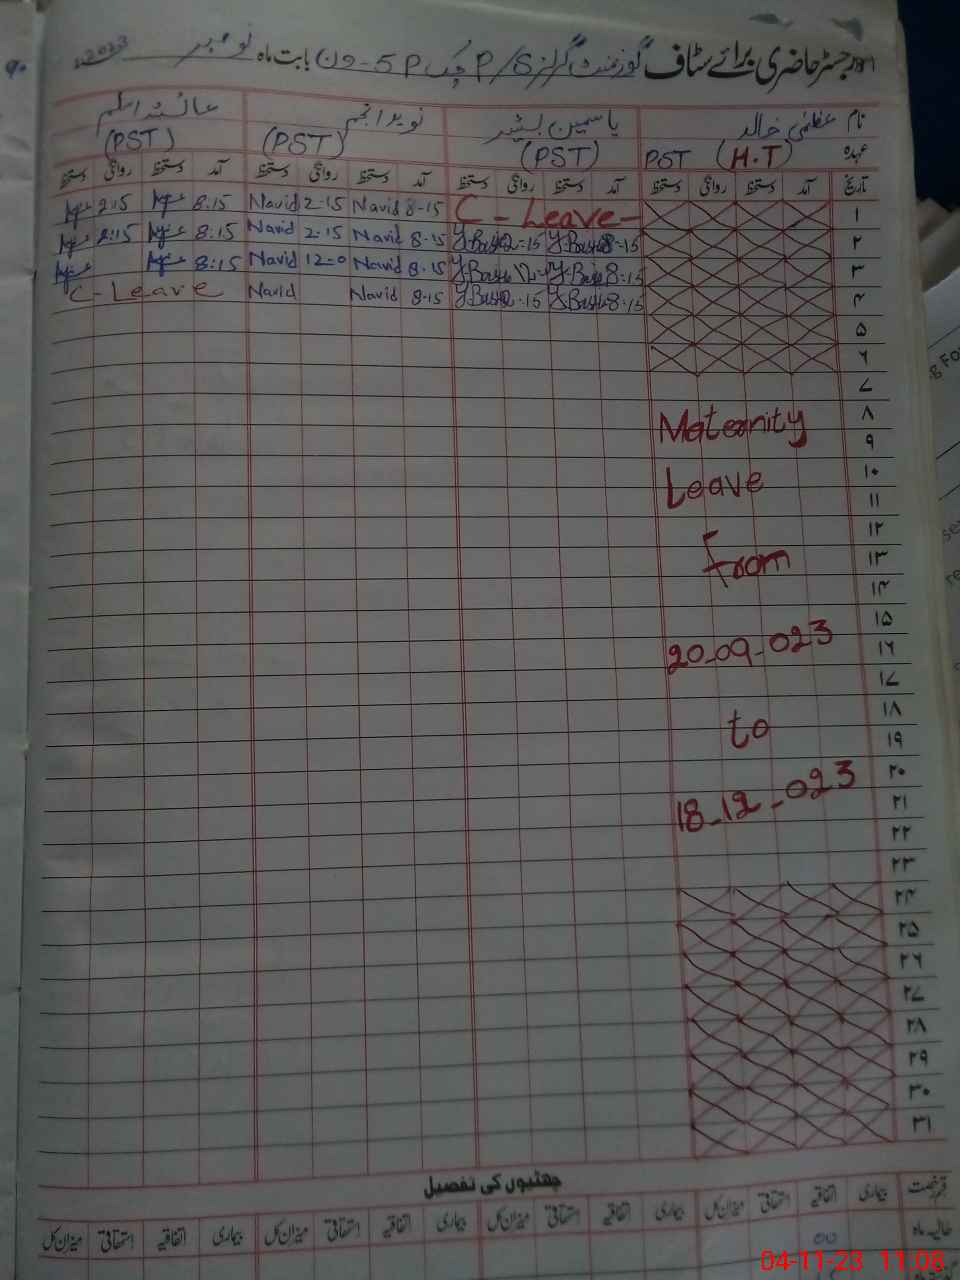 رجسٹر حاضری برائے سٹاف گورنمنٹ گرلز P/S چک 5P-ون بابت ماہ نومبر 2023
نام عظمیٰ خالد یاسمین بشیر نوید انجم عائشہ اسلم
عہدہ (H.T) PST (PST) (PST) (PST)
تاریخ آمد دستخط روانگی دستخط آمد دستخط روانگی دستخط آمد دستخط روانگی دستخط آمد دستخط روانگی دستخط
۱ C - Leave - 8-15 Navid 2-15 Navid 8.15 2:15
۲ 8-15 Y.Bashir 2-15 Y.Bashir 8-15 Navid 2-15 Navid 8:15 2:15
۳ 8:15 Y.Bashir Y.Bashir 8.15 Navid 12=0 Navid 8:15
۴ 8-15 Y.Bashir 2-15 Y.Bashir 8-15 Navid Navid C-Leave
۵
۶
۷
۸ Maternity
۹
۱۰ Leave
۱۱
۱۲
۱۳ From
۱۴
۱۵
۱۶ 20-09-023
۱۷
۱۸
۱۹ to
۲۰
۲۱ 18-12-023
۲۲
۲۳
۲۴
۲۵
۲۶
۲۷
۲۸
۲۹
۳۰
۳۱
چھٹیوں کی تفصیل
قسم رخصت بیماری اتفاقیہ استحقاقی میزان کل بیماری اتفاقیہ استحقاقی میزان کل بیماری اتفاقیہ استحقاقی میزان کل بیماری اتفاقیہ استحقاقی میزان کل
حالیہ ماہ 00
04-11-23 11:08